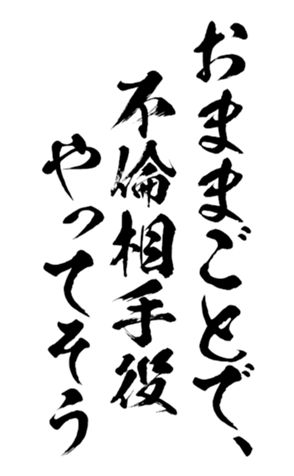 おままごとで、
不倫相手役
やってそう